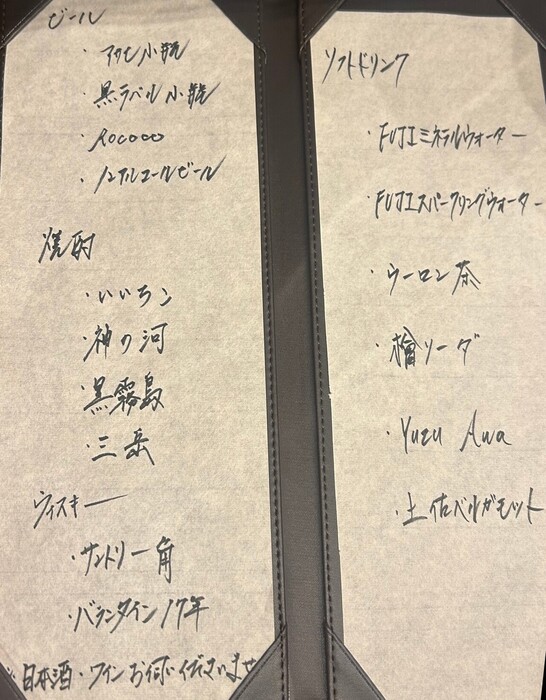 ビール
・アサヒ小瓶
・黒ラベル小瓶
・Rococo
・ノンアルコールビール
焼酎
・いいちこ
・神の河
・黒霧島
・三岳
ウィスキー
・サントリー角
・バランタイン17年
※日本酒・ワインお伺いくださいませ
ソフトドリンク
・FUJIミネラルウォーター
・FUJIスパークリングウォーター
・ウーロン茶
・檜ソーダ
・Yuzu Awa
・土佐ベルガモット